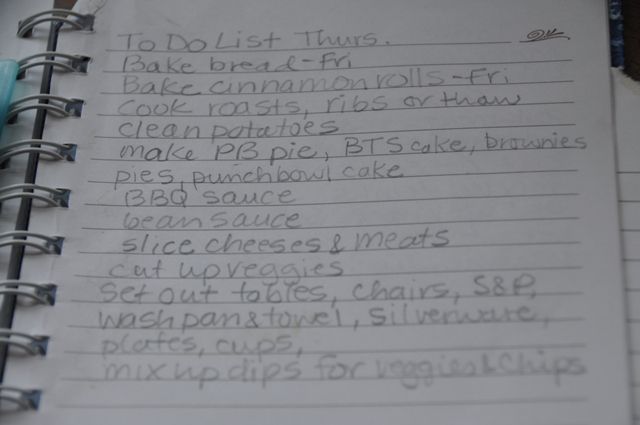 To Do List Thurs.
Bake bread-Fri
Bake cinnamon rolls-Fri
Cook roasts, ribs or thaw
clean potatoes
make PB pie, BTS cake, brownies
pies, punchbowl cake
BBQ sauce
bean sauce
slice cheeses & meats
cut up veggies
Set out tables, chairs, S&P,
wash pan & towel, silverware,
plates, cups,
mix up dips for veggies & Chips